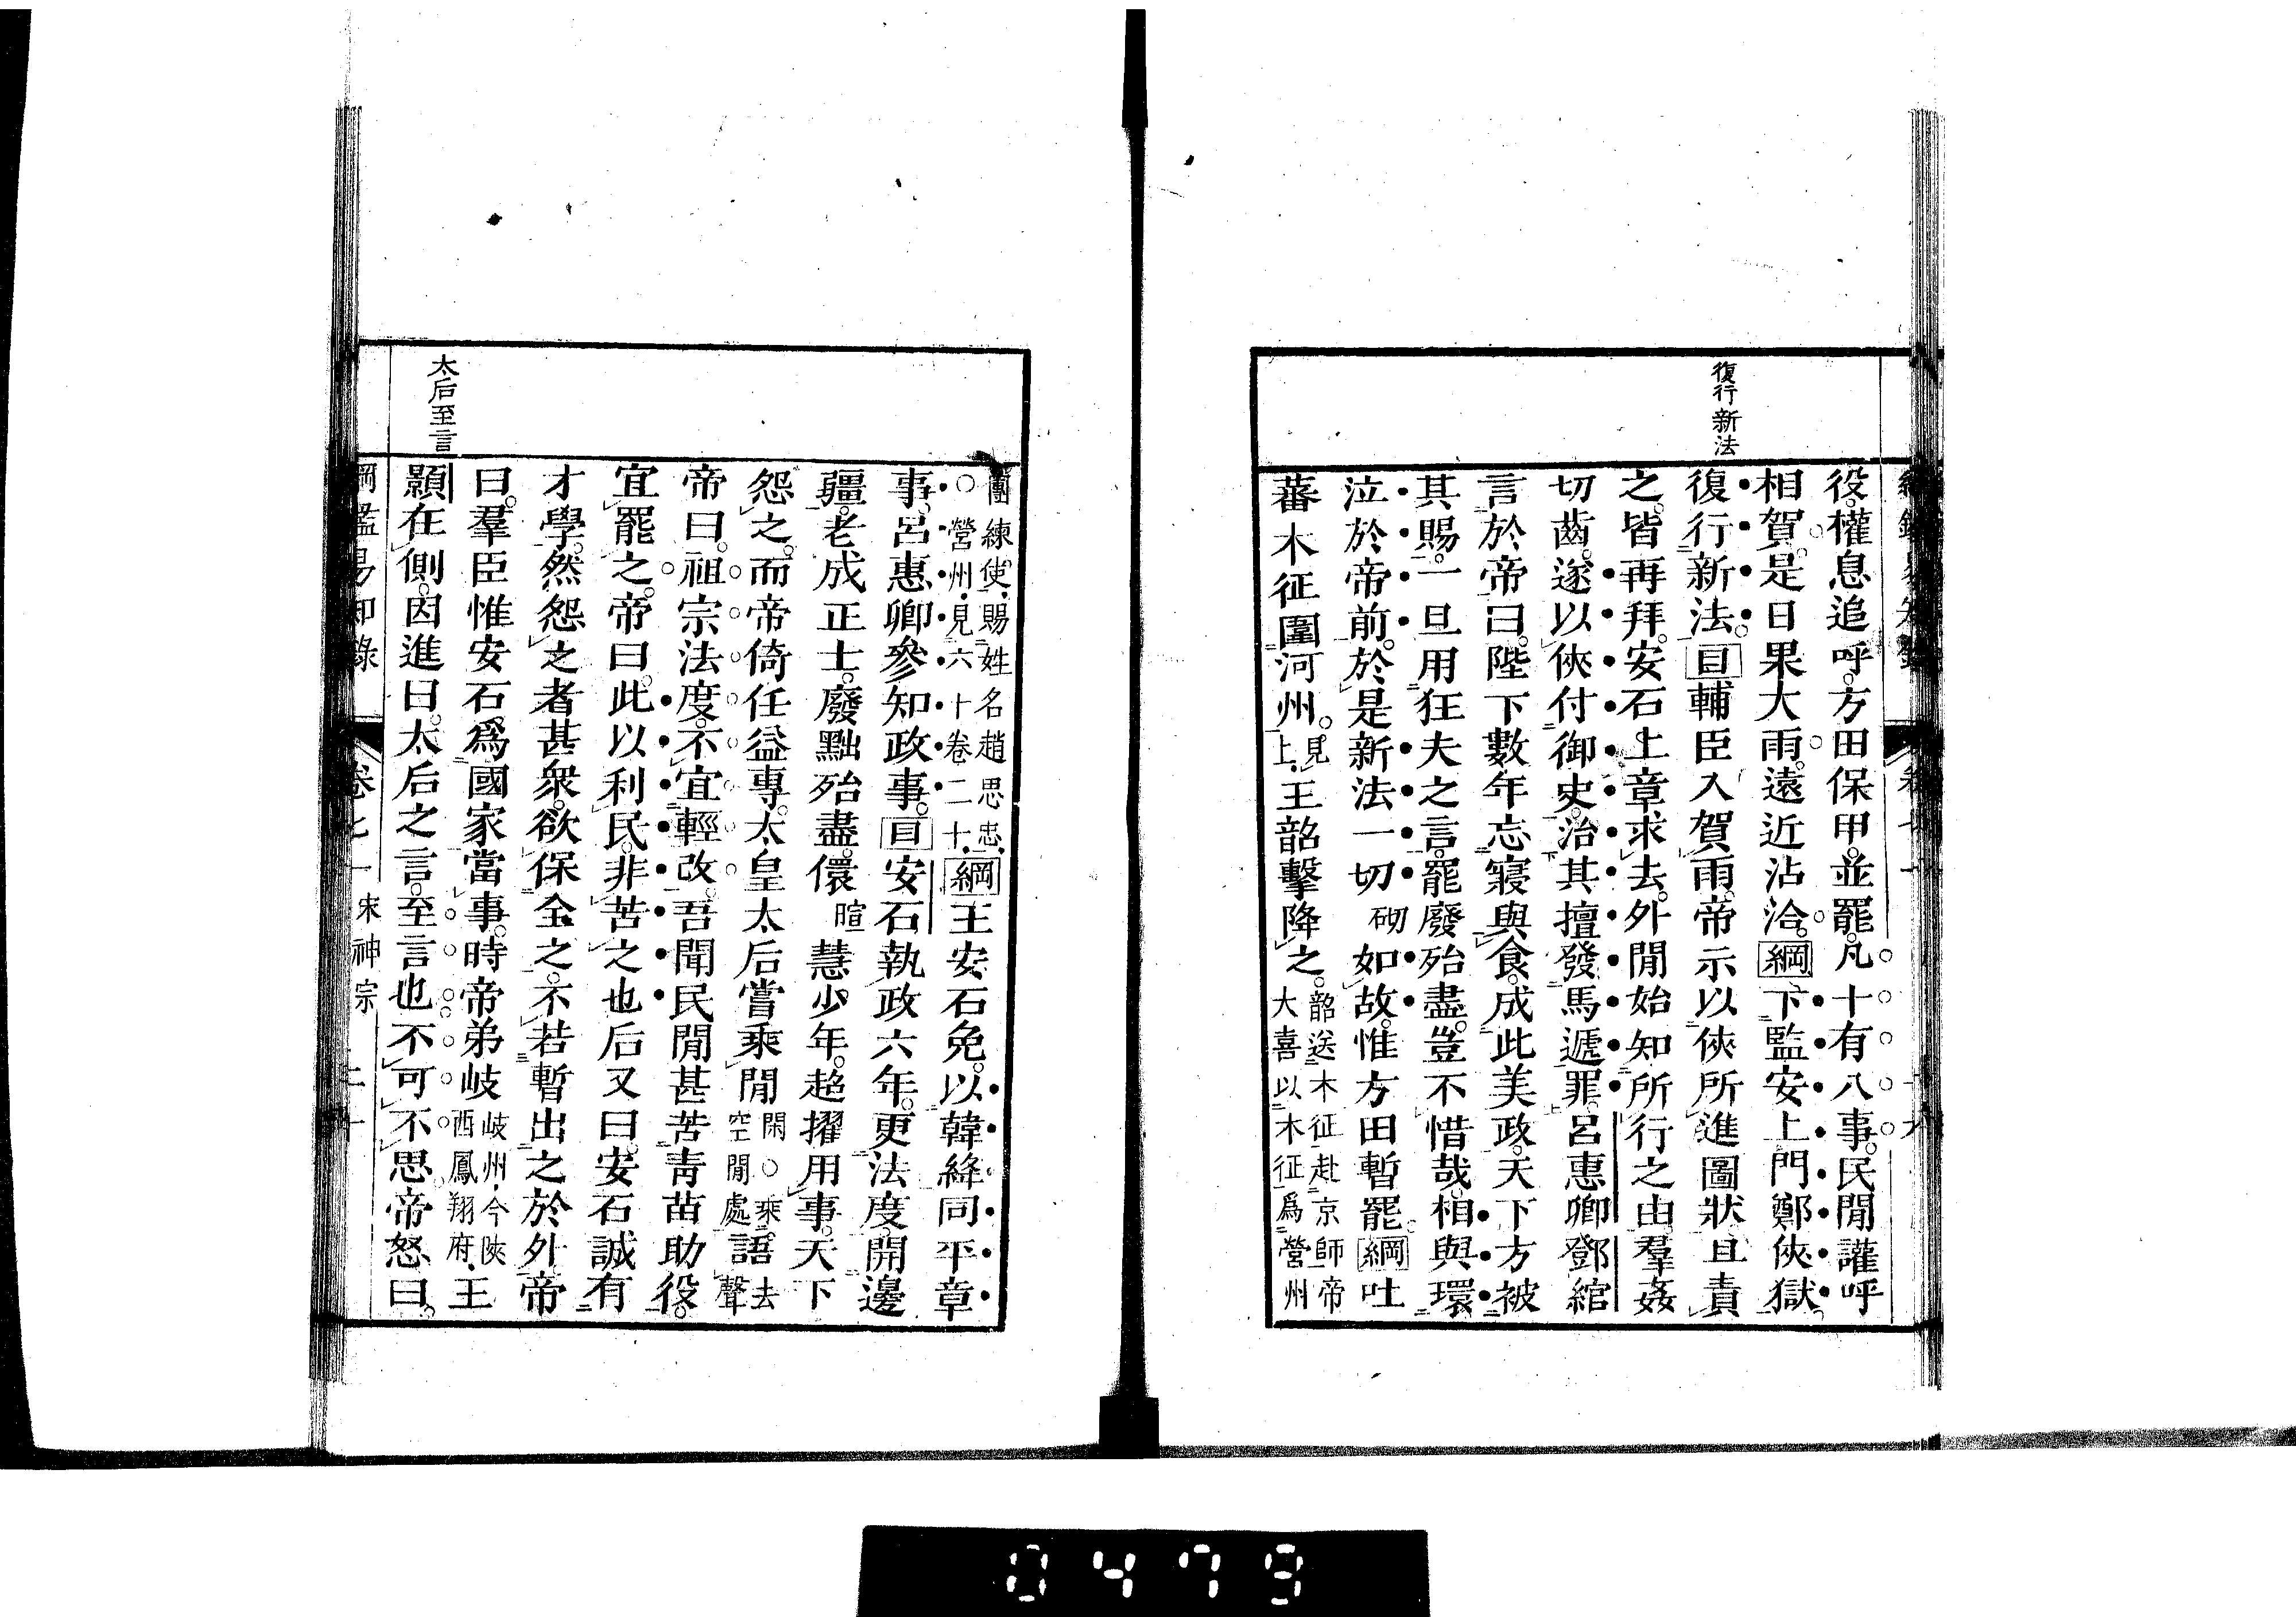 復行新法
役。權息追呼。方田保甲。並罷。凡十有八事。民閒讙呼
相賀。是日果大雨。遠近沾洽。綱下監安上門鄭俠獄。
復行新法。目輔臣入賀雨。帝示以俠所進圖狀。且責
之。皆再拜。安石上章求去。外閒始知所行之由。羣姦
切齒。遂以俠付御史。治其擅發馬遞罪。呂惠卿鄧綰
言於帝曰。陛下數年忘寢與食。成此美政。天下方被
其賜。一旦用狂夫之言。罷廢殆盡。豈不惜哉。相與環
泣於帝前。於是新法一切砌如故。惟方田暫罷。綱吐
蕃木征圍河州。見上。王韶擊降之。韶送木征赴京師帝大喜以木征爲營州
團練使。賜姓名趙思忠。○營州。見六十卷二十。綱王安石免。以韓絳同平章
事。呂惠卿參知政事。目安石執政六年。更法度。開邊
疆。老成正士。廢黜殆盡。儇暄慧少年。超擢用事。天下
怨之。而帝倚任益專。太皇太后嘗乘閒閑○乘空閒處。語去聲
帝曰。祖宗法度。不宜輕改。吾聞民閒甚苦青苗助役。
宜罷之。帝曰。此以利民。非苦之也后又曰。安石誠有
才學。然怨之者甚衆。欲保全之。不若暫出之於外帝
曰。羣臣惟安石。爲國家當事。時帝弟岐岐州。今陝西鳳翔府。王
顥在側。因進曰。太后之言。至言也不可不思帝怒曰。
太后至言
綱鑑易知錄 卷七一 宋神宗 二十